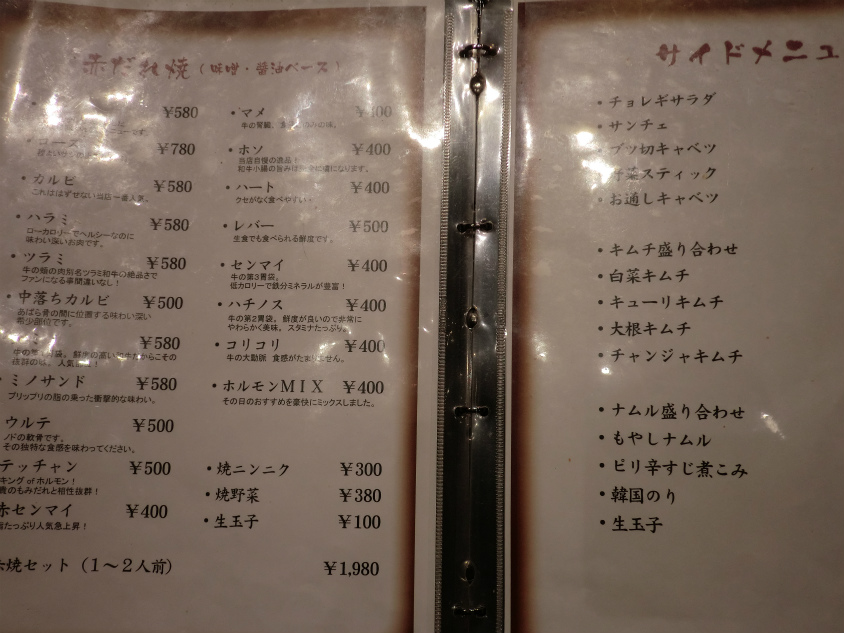 赤だれ焼（味噌・醤油ベース）
¥580
・ロース ¥780
・カルビ ¥580
これははずせない当店一番人気。
・ハラミ ¥580
ローカロリーでヘルシーなのに
味わい深いお肉です。
・ツラミ ¥580
牛の頬の肉別名ツラミ和牛の絶品さで
ファンになる事間違いなし！
・中落ちカルビ ¥500
あばら骨の間に位置する味わい深い
希少部位です。
¥580
・ミノサンド ¥580
プリップリの脂の乗った衝撃的な味わい。
ウルテ ¥500
ノドの軟骨です。
その独特な食感を味わってください。
テッチャン ¥500
キング of ホルモン！
のもみだれと相性抜群！
赤センマイ ¥400
たっぷり人気急上昇！
焼セット（１～２人前） ¥1,980
・マメ
牛の腎臓、
・ホソ ¥400
当店自慢の逸品！
和牛小腸の旨みは になります。
・ハート ¥400
クセがなく食べやすい
・レバー ¥500
生食でも食べられる鮮度です。
・センマイ ¥400
牛の第3胃袋。
低カロリーで鉄分ミネラルが豊富！
・ハチノス ¥400
牛の第2胃袋。鮮度が良いので非常に
やわらかく美味。スタミナたっぷり。
・コリコリ ¥400
牛の大動脈 食感がたまりません。
・ホルモンＭＩＸ ¥400
その日のおすすめを豪快にミックスしました。
・焼ニンニク ¥300
・焼野菜 ¥380
・生玉子 ¥100
サイドメニュ
・チョレギサラダ
・サンチェ
・ブツ切キャベツ
・野菜スティック
・お通しキャベツ
・キムチ盛り合わせ
・白菜キムチ
・キューリキムチ
・大根キムチ
・チャンジャキムチ
・ナムル盛り合わせ
・もやしナムル
・ピリ辛すじ煮こみ
・韓国のり
・生玉子